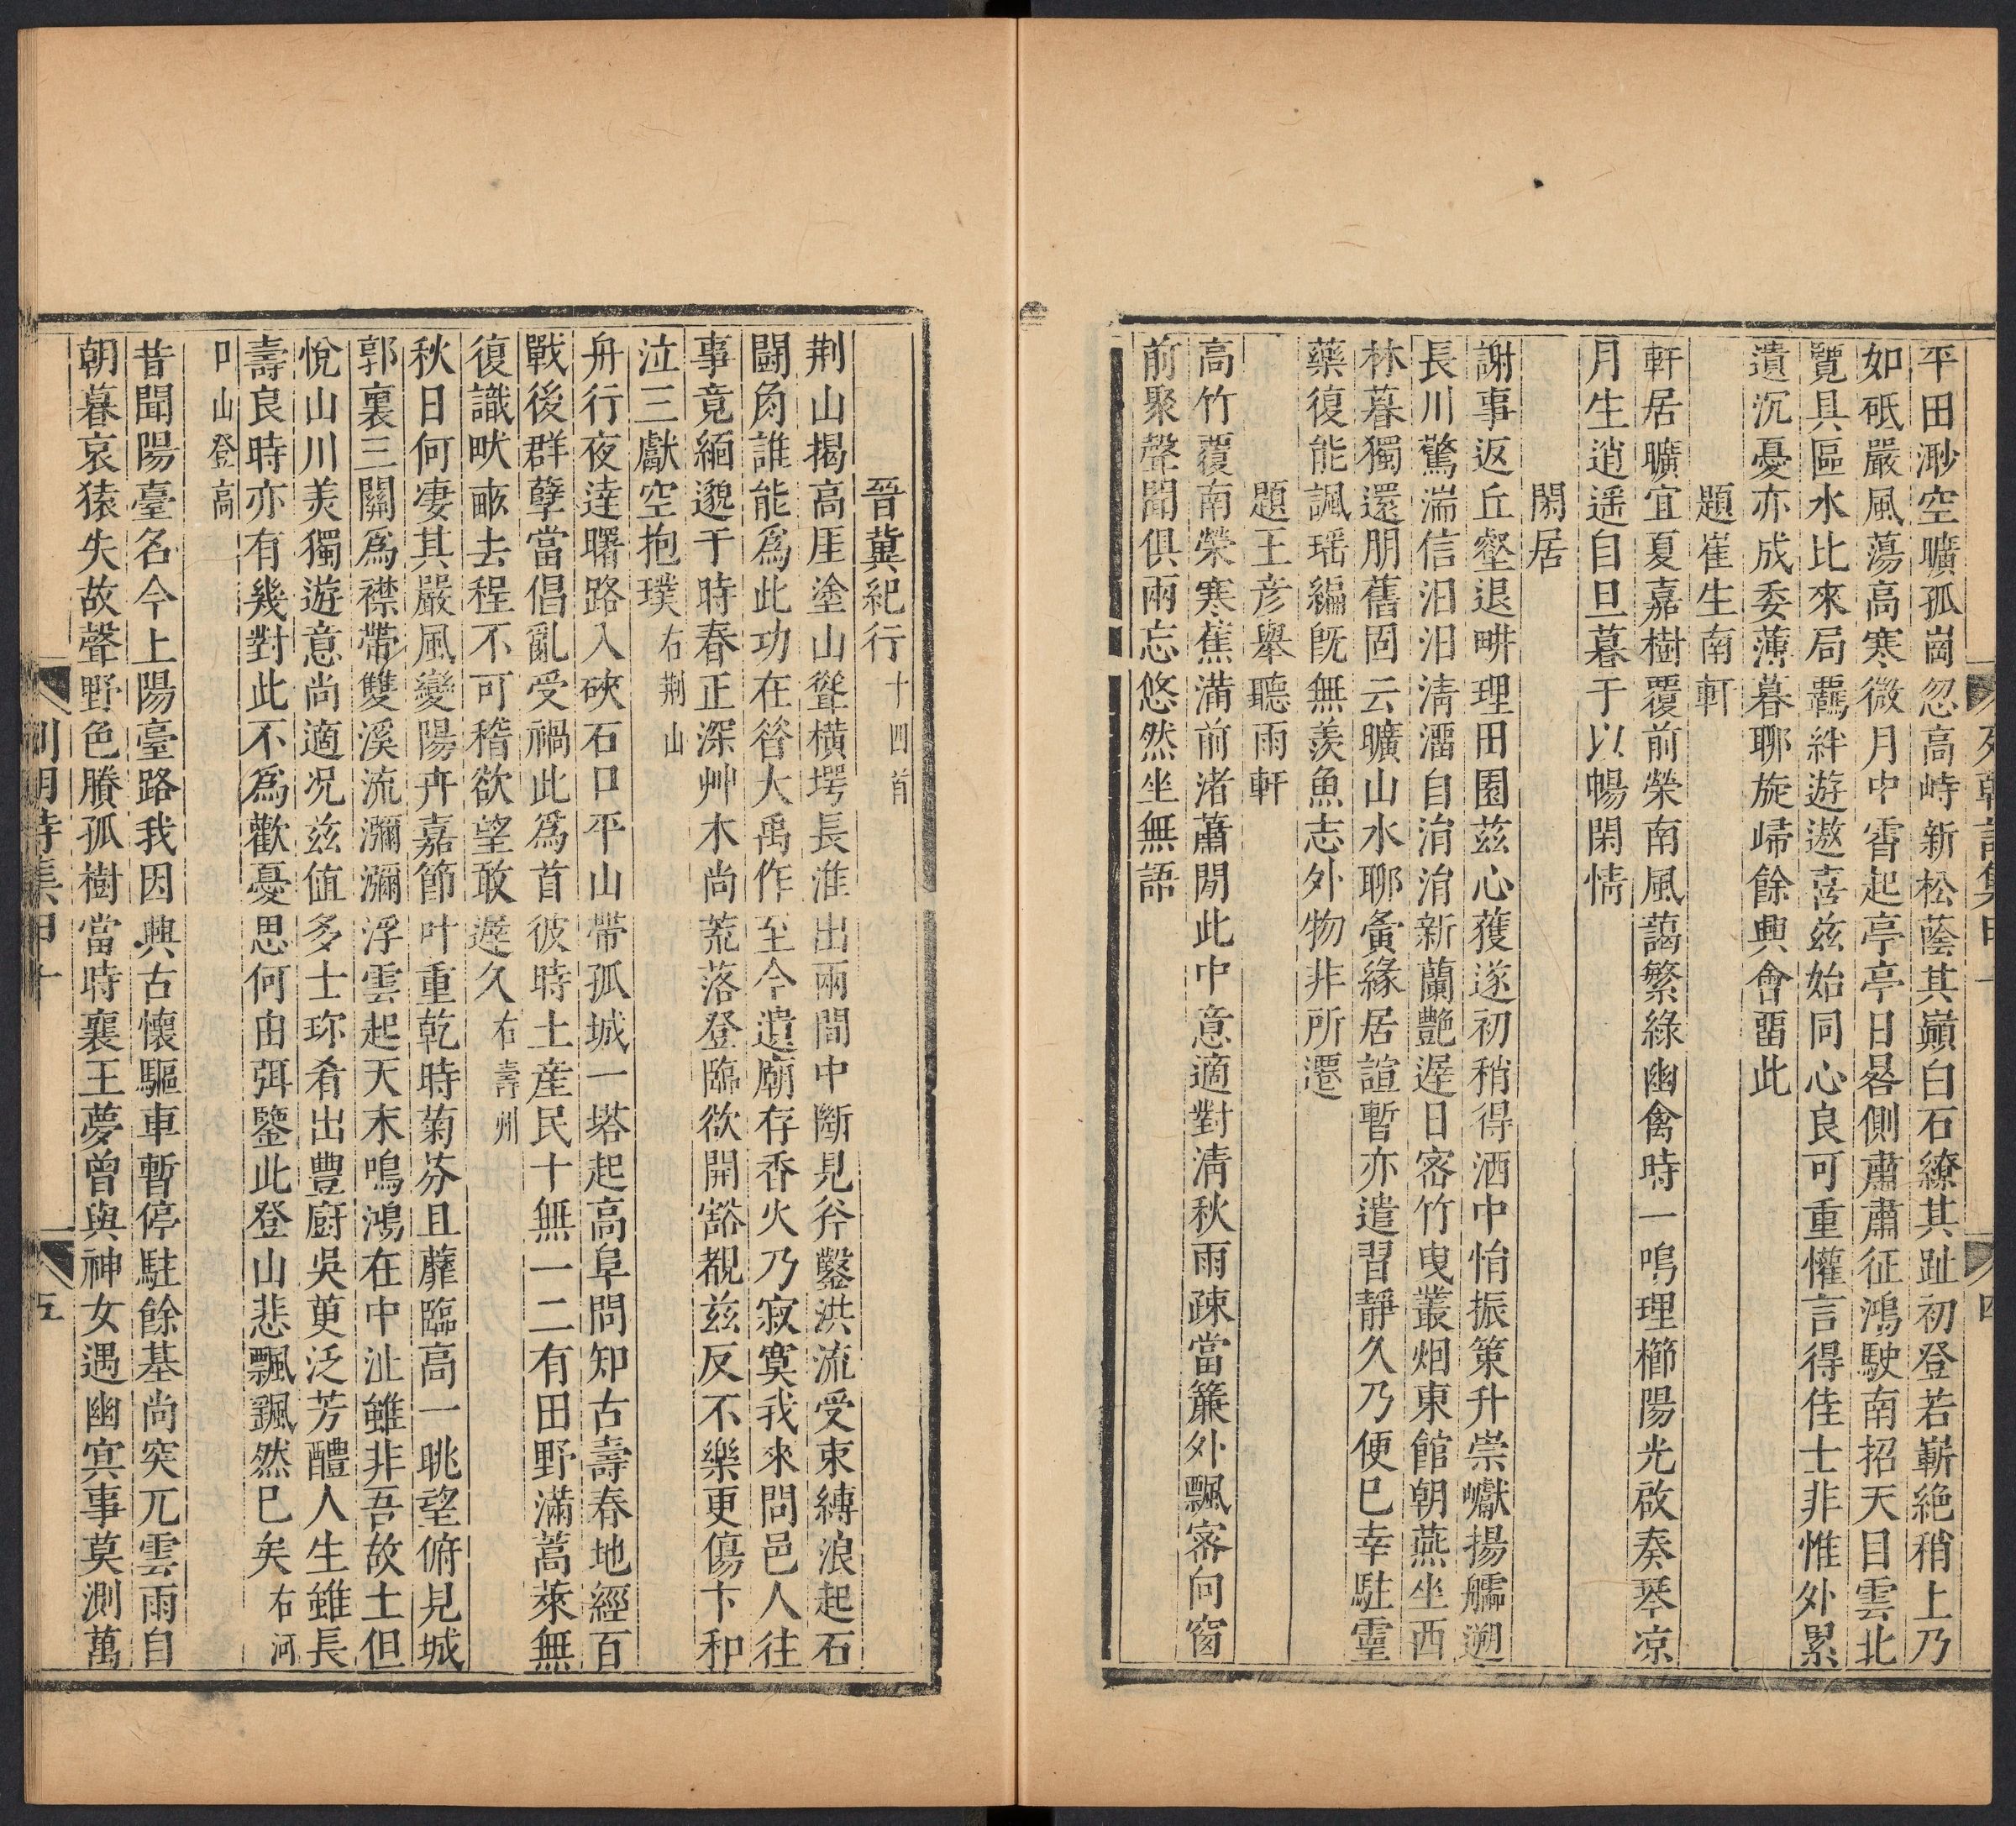 平田渺空曠孤崗忽高峙新松蔭其巔白石繚其趾初登若嶄絶稍上乃
如砥嚴風蕩高寒微月中霄起亭亭日晷側肅肅征鴻駛南招天目雲北
覽具區水比來局羈絆遊遨喜兹始同心良可重懽言得佳士非惟外累
遺沉憂亦成委薄暮聊旋歸餘興會畱此
題崔生南軒
軒居曠宜夏嘉樹覆前榮南風藹繁綠幽禽時一鳴理櫛陽光啟奏琴凉
月生逍遥自旦暮于以暢閑情
閑居
謝事返丘壑退畊理田園兹心獲遂初稍得洒中悁振策升崇巘揚艫遡
長川驚湍信汨汨清澑自涓涓新蘭艷遲日密竹曳叢烟東館朝燕坐西
林暮獨還朋舊固云曠山水聊夤緣居諠暫亦遣習靜久乃便巳幸駐靈
藥復能諷瑶編旣無羨魚志外物非所遷
題王彦舉聽雨軒
高竹覆南榮寒蕉滿前渚蕭閒此中意適對清秋雨疎當簾外飄密向窗
前聚聲聞俱兩忘悠然坐無語
四
晉冀紀行十四首
荆山揭高厓塗山聳橫堮長淮出兩間中斷見斧鑿洪流受束縛浪起石
鬬角誰能爲此功在昝大禹作至今遺廟存香火乃寂寞我來問邑人往
事竟緬邈于時春正深艸木尚荒落登臨欲開豁覩兹反不樂更傷卞和
泣三獻空抱璞右荆山
舟行夜達曙路入硤石口平山帶孤城一塔起高阜問知古壽春地經百
戰後群孽當倡亂受禍此爲首彼時土産民十無一二有田野滿蒿萊無
復識畎畝去程不可稽欲望敢遲久右壽州
秋日何凄其嚴風變陽卉嘉節叶重乾時菊芬且蘼臨高一眺望俯見城
郭裏三關爲襟帶雙溪流瀰瀰浮雲起天末鳴鴻在中沚雖非吾故土但
悅山川美獨遊意尚適况兹値多士珎肴出豐廚吳萸泛芳醴人生雖長
壽良時亦有幾對此不爲歡憂思何由弭鑒此登山悲飄飄然巳矣右河
卩山登高
昔聞陽臺名今上陽臺路我因興古懷驅車暫停駐餘基尚突兀雲雨自
朝暮哀猿失故聲野色賸孤樹當時襄王夢曾與神女遇幽冥事莫測萬
列朝詩集甲十
五